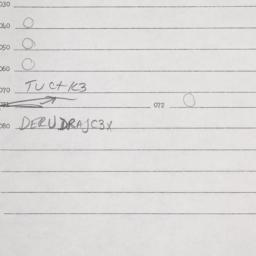 030
040
050
060
070 TUC+K3
072
080 DERUDRAJC3X